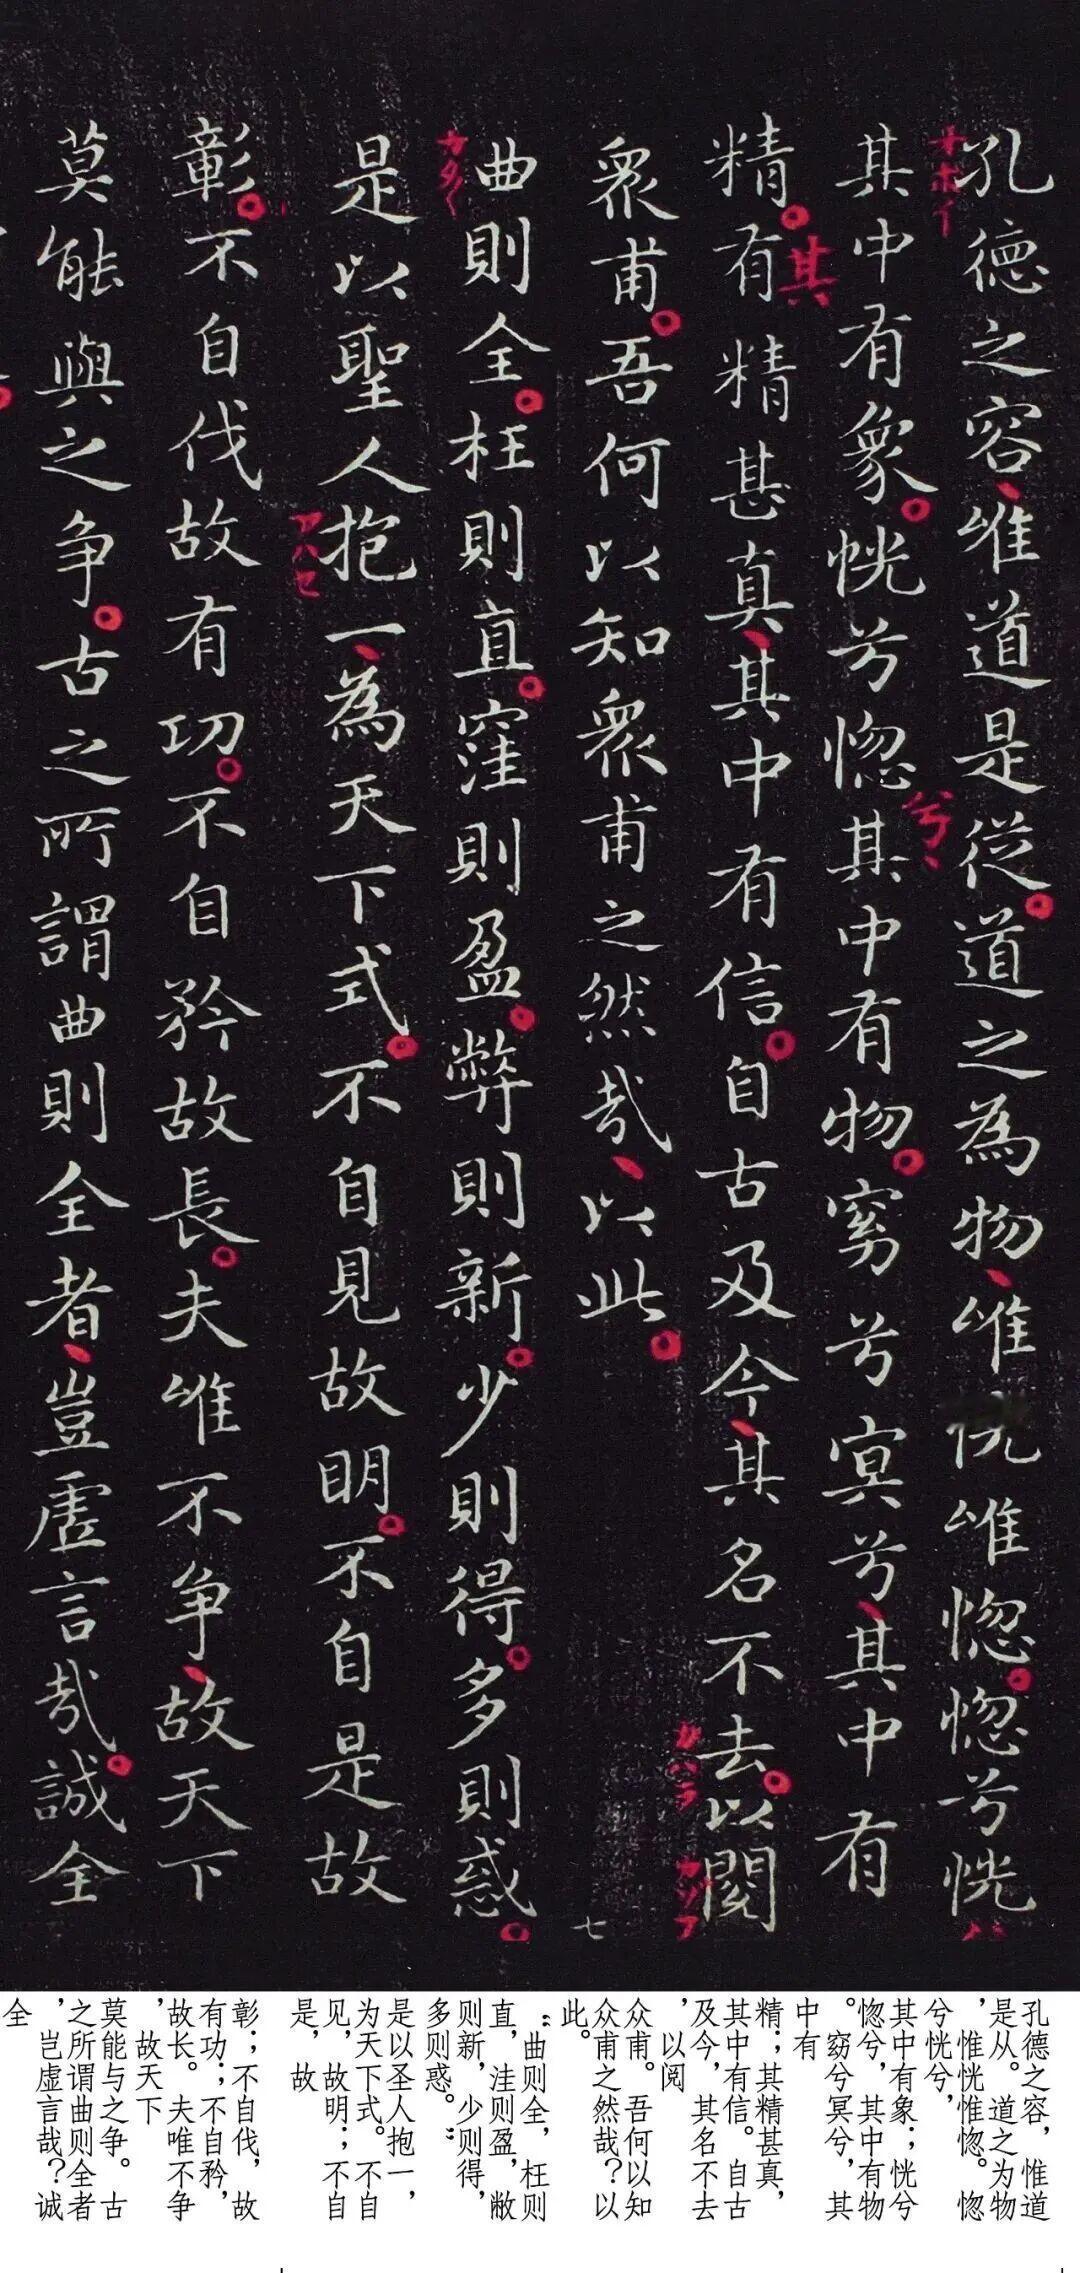 孔德之容唯道是從道之為物唯恍唯惚惚兮恍
其中有象恍兮惚其中有物窈兮冥兮其中有
兮
精有精甚真其中有信自古及今其名不去以閱
其
衆甫吾何以知衆甫之然哉以此
七
曲則全枉則直窪則盈弊則新少則得多則惑
是以聖人抱一為天下式不自見故明不自是故
彰不自伐故有功不自矜故長夫唯不争故天下
莫能與之争古之所謂曲則全者豈虛言哉誠全
孔德之容，惟道
是从。道之为物
，惟恍惟惚。惚
兮恍兮，
其中有象；恍兮
惚兮，其中有物
。窈兮冥兮，其
中有
精；其精甚真，
其中有信。自古
及今，其名不去
，以阅
众甫。吾何以知
众甫之然哉？以
此。
“曲则全，枉则
直，洼则盈，敝
则新，少则得，
多则惑。”
是以圣人抱一，
为天下式。不自
见，故明；不自
是，故
彰；不自伐，故
有功；不自矜，
故长。夫唯不争
，故天下
莫能与之争。古
之所谓曲则全者
，岂虚言哉？诚
全